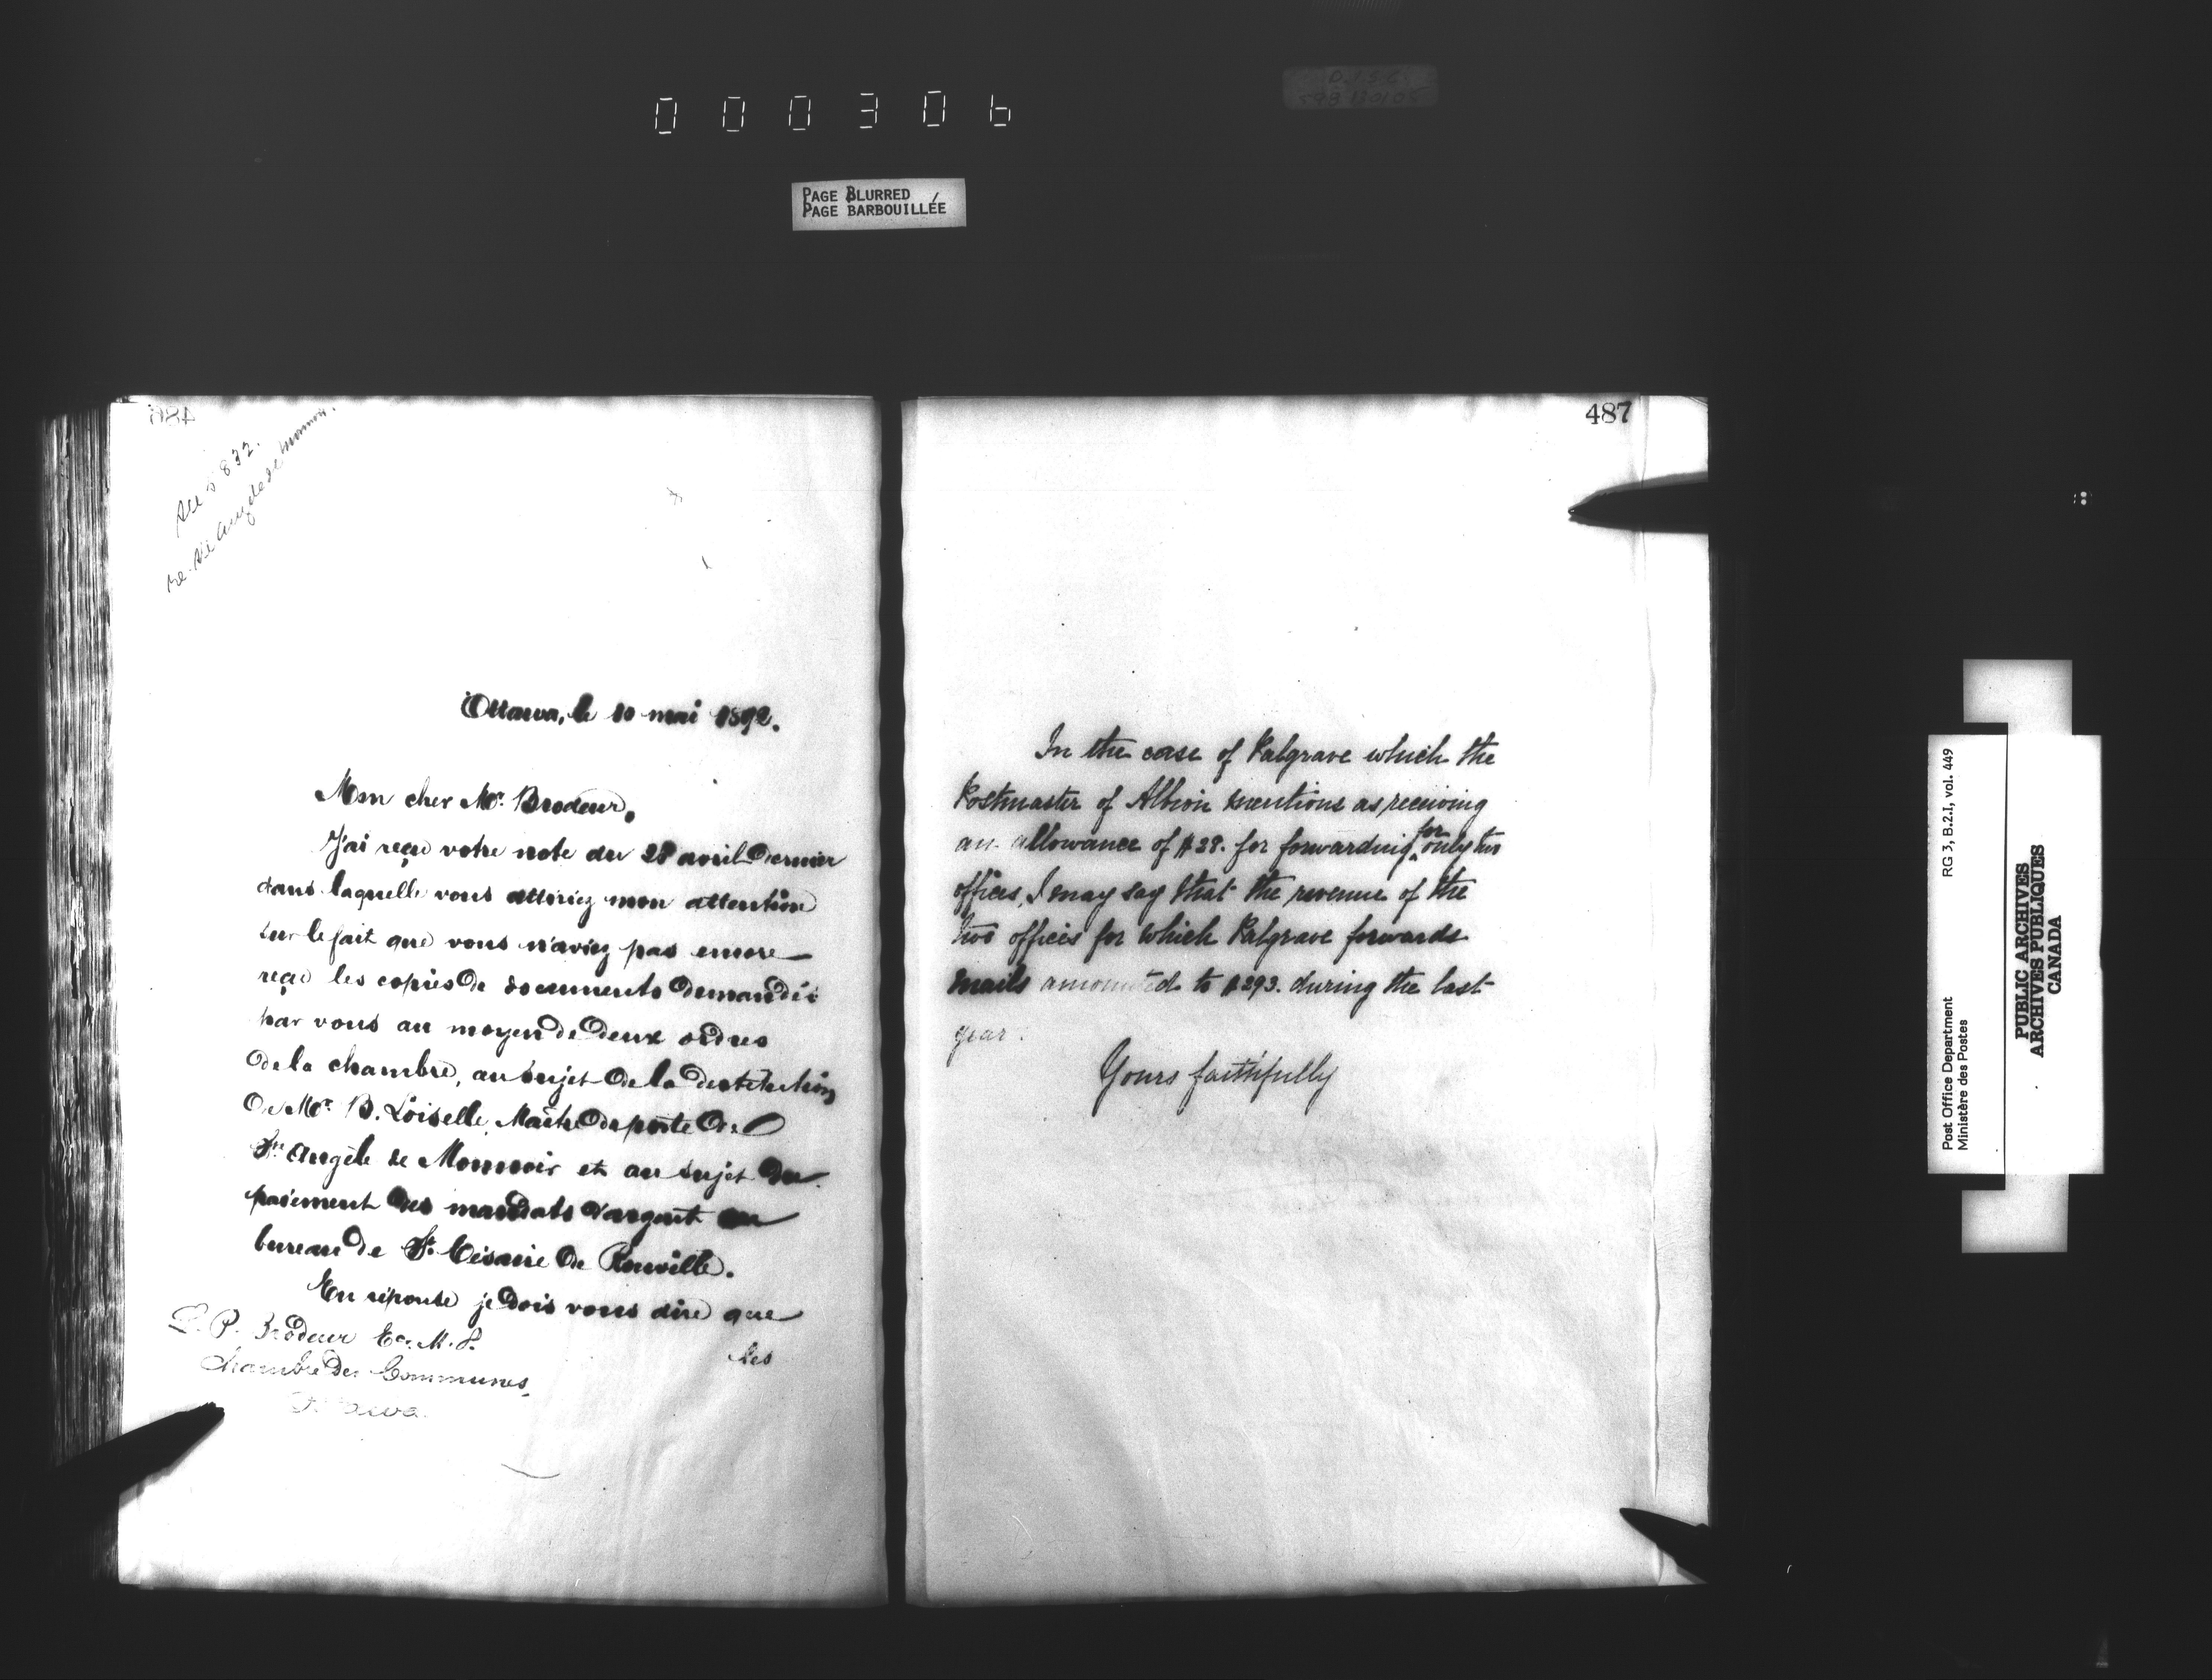 000306
PAGE BLURRED
PAGE BARBOUILLÉE
486
See 5832.
re. Ste Angele de Monnoir.
Ottawa, le 10 mai 1892.
Mon cher Mr. Brodeur,
J'ai reçu votre note du 28 avril dernier
dans laquelle vous attiriez mon attention
sur le fait que vous n'aviez pas encore
reçu les copies de documents demandés
par vous au moyen de deux ordres
de la chambre, au sujet de la destitution
de Mr. B. Loiselle, Maître de poste de
Ste Angèle de Monnoir et au sujet du
paiement des mandats d'argent au
bureau de St. Césaire de Rouville.
En réponse je dois vous dire que
les
L. P. Brodeur Ec. M.P.
Chambre des Communes,
Ottawa.
487
In the case of Palgrave which the
Postmaster of Albion mentions as receiving
an allowance of $28. for forwarding for only two
offices, I may say that the revenue of the
two offices for which Palgrave forwards
mails amounted to $293. during the last
year.
Yours faithfully
Post Office Department
Ministère des Postes
RG 3, B.2.I, vol. 449
PUBLIC ARCHIVES
ARCHIVES PUBLIQUES
CANADA